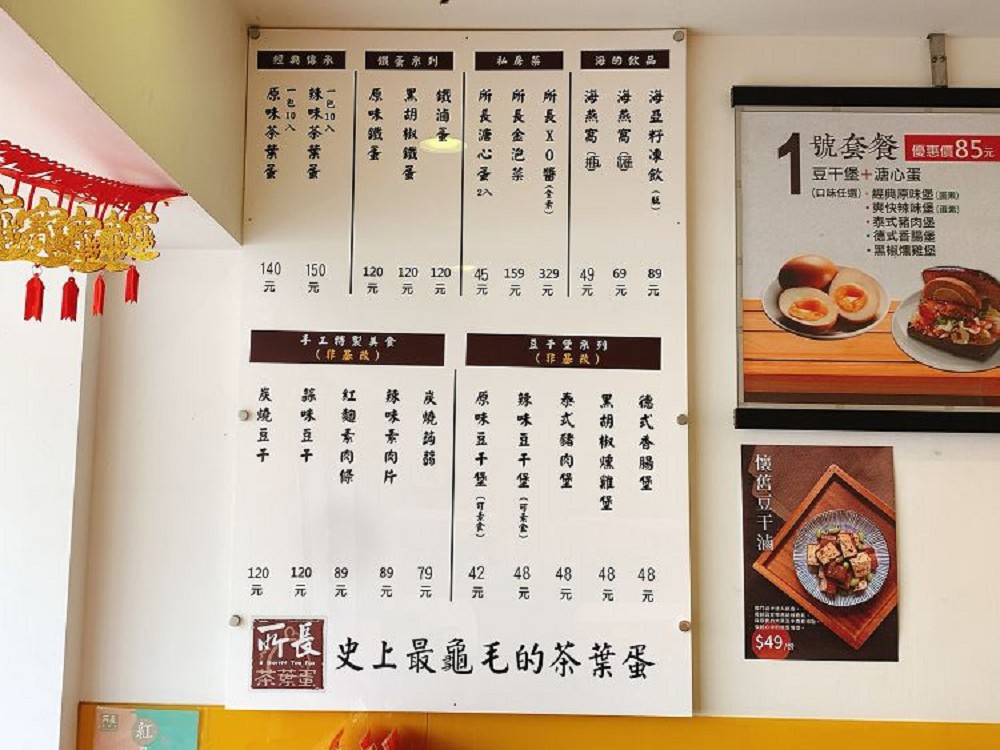 經典傳承
原味茶葉蛋
一包10入
140元
辣味茶葉蛋
一包10入
150元
鐵蛋系列
原味鐵蛋
120元
黑胡椒鐵蛋
120元
鐵滷蛋
120元
私房菜
所長溏心蛋 2入
45元
所長金泡菜
159元
所長XO醬(全素)
329元
海的飲品
海燕窩
49元
海燕窩
69元
海亞籽凍飲
89元
手工特製美食
(非基改)
炭燒豆干
120元
蒜味豆干
120元
紅麴素肉條
89元
辣味素肉片
89元
炭燒蒟蒻
79元
豆干堡系列
(非基改)
原味豆干堡(可素食)
42元
辣味豆干堡(可素食)
48元
泰式豬肉堡
48元
黑胡椒燻雞堡
48元
德式香腸堡
48元
所長
茶葉蛋
史上最龜毛的茶葉蛋
1號套餐 優惠價85元
豆干堡+溏心蛋
(口味任選)・經典原味堡(蛋素)
・爽快辣味堡(蛋素)
・泰式豬肉堡
・德式香腸堡
・黑椒燻雞堡
懷舊豆干滷
$49
紅